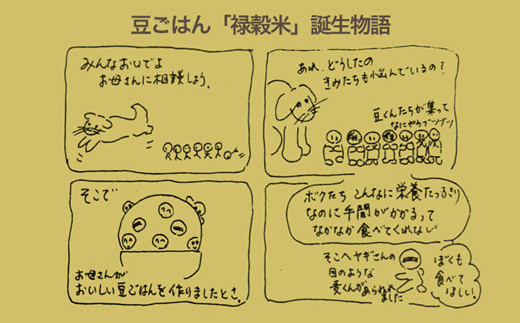 豆ごはん「禄穀米」誕生物語
あれ、どうしたの
きみたちも悩んでいるの？
豆くんたちが集って
なにやらブツブツ
ボクたち こんなに栄養たっぷり
なのに手間がかかるって
なかなか食べてくれない
そこへヤギさんの
目のような
麦くんがあらわれ
ました
ぼくも
食べて
ほしい！
みんなおいでよ
お母さんに相談しよう。
そこで
お母さんが
おいしい豆ごはんを作りましたとさ。